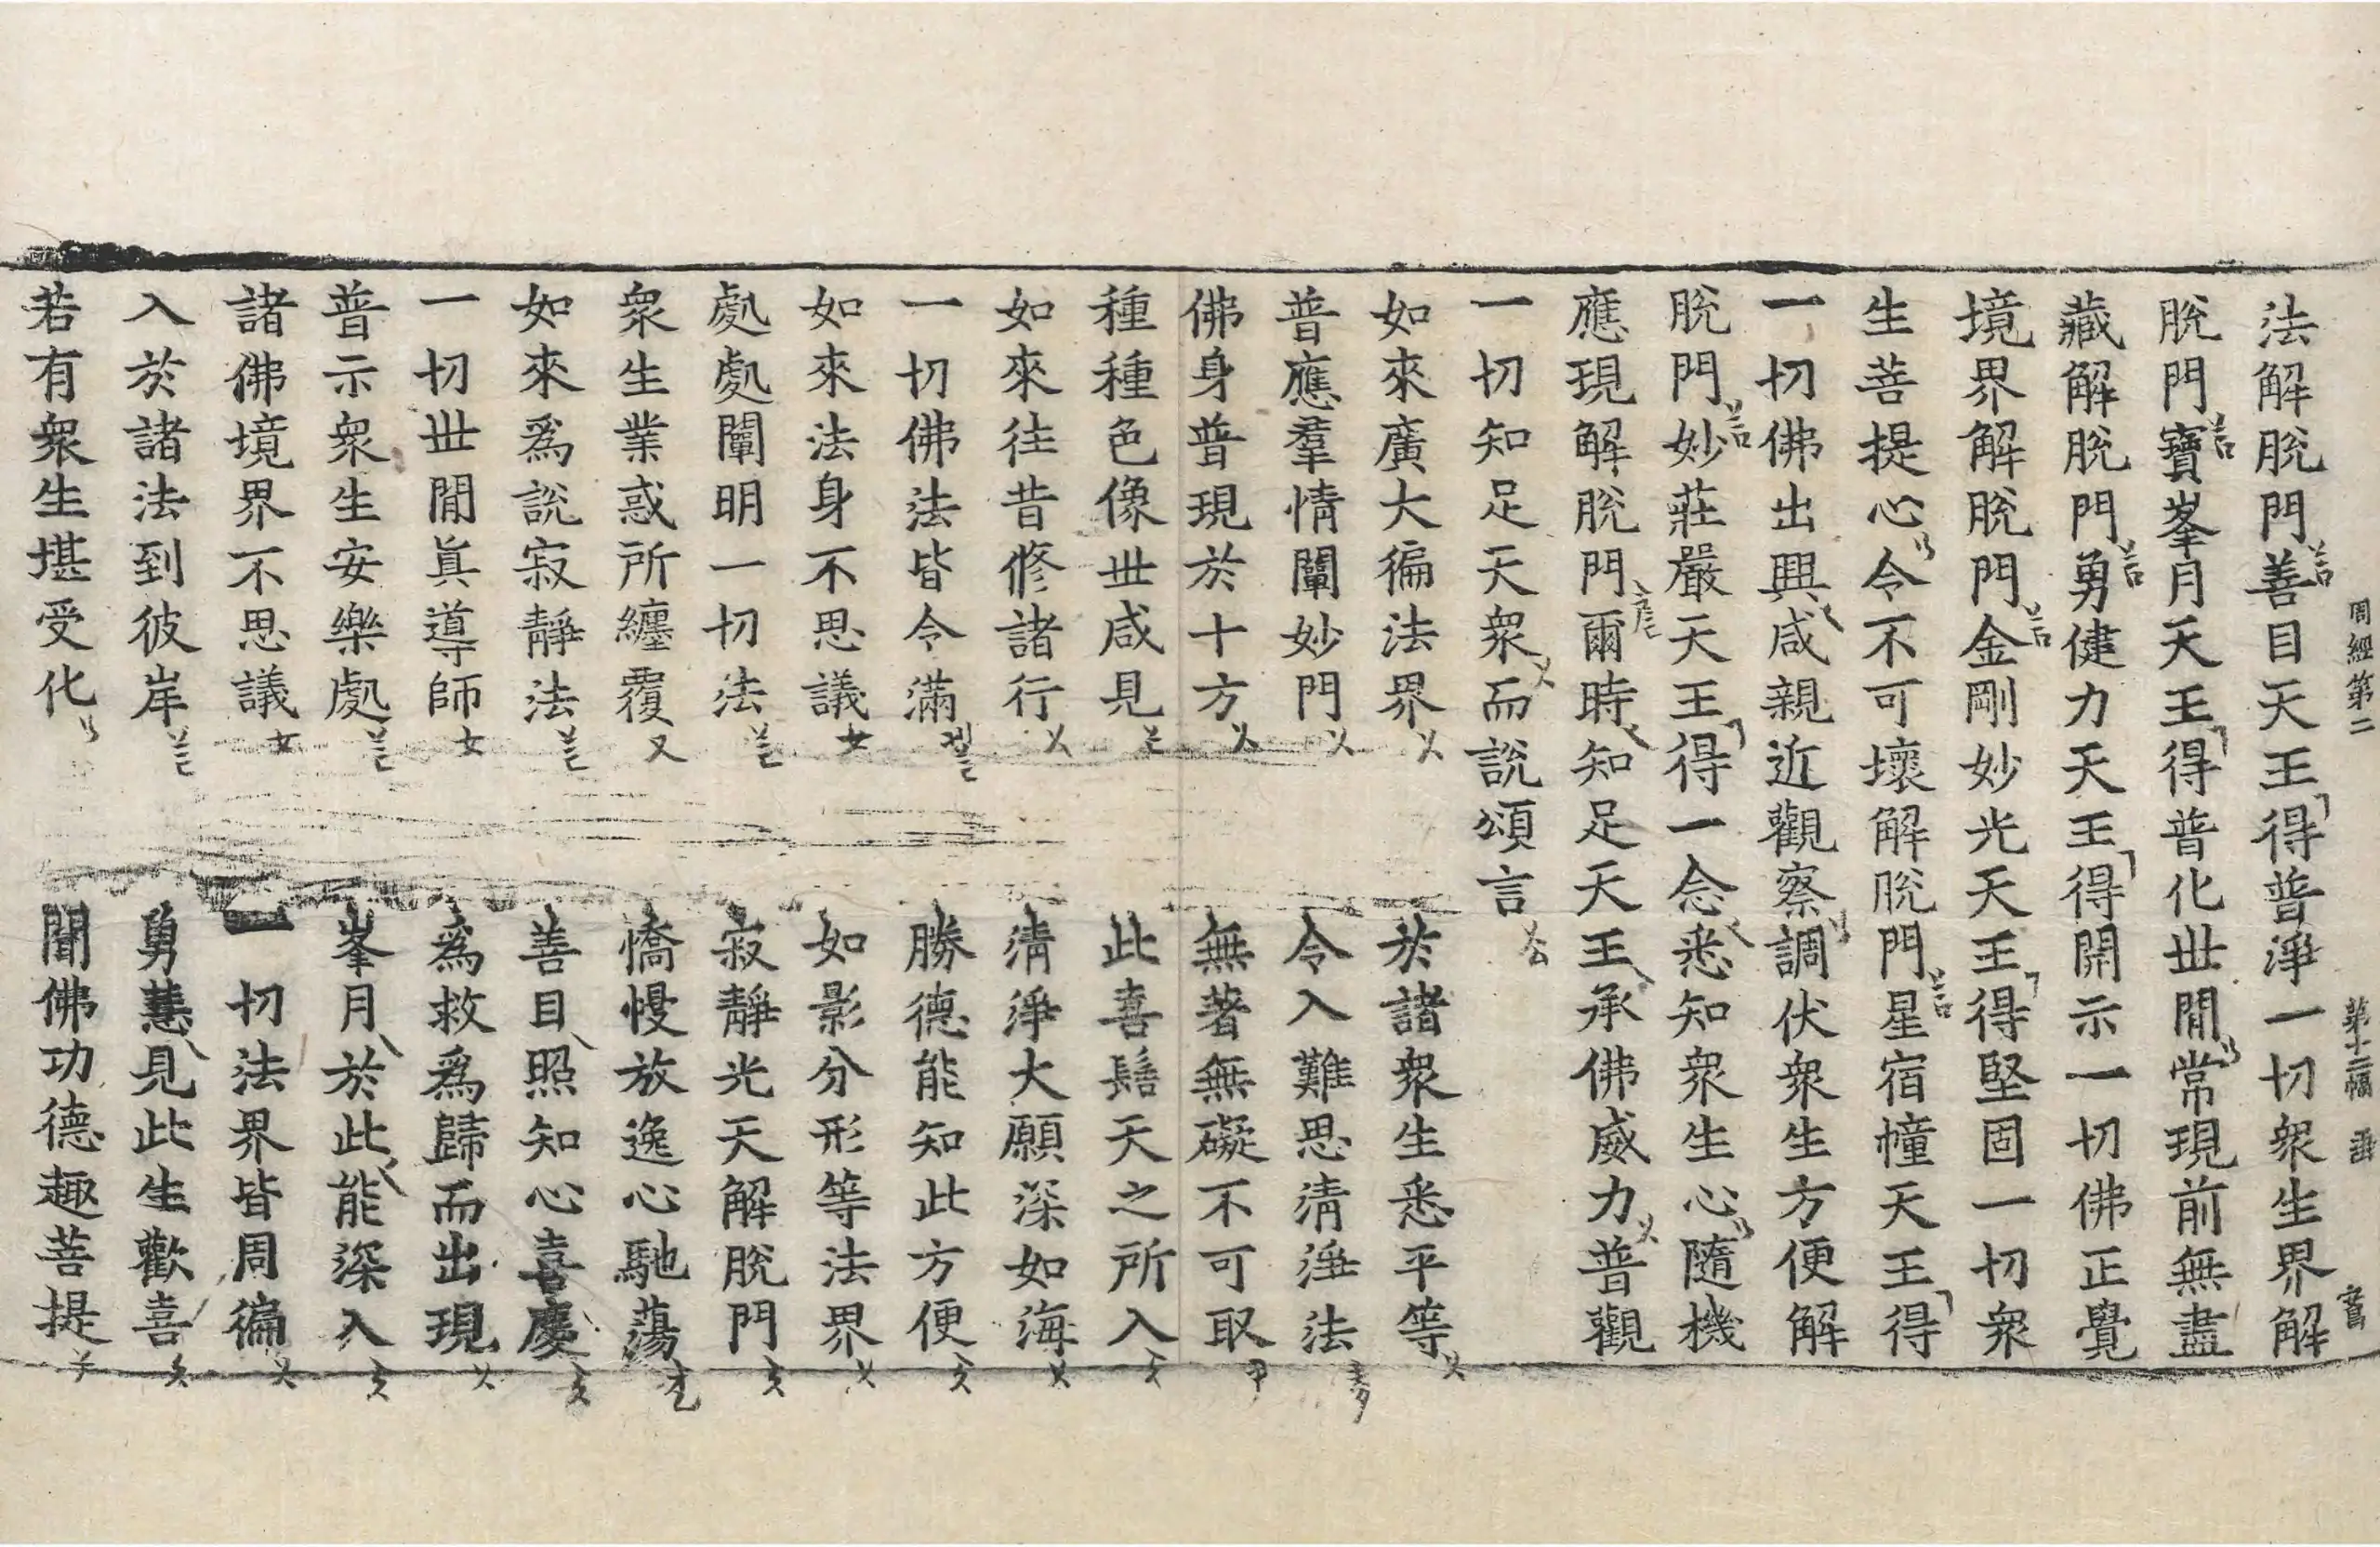 法解脫門善目天王得普淨一切衆生界解
脫門寶峯月天王得普化世間常現前無盡
藏解脫門勇健力天王得開示一切佛正覺
境界解脫門金剛妙光天王得堅固一切衆
生菩提心令不可壞解脫門星宿幢天王得
一切佛出興咸親近觀察調伏衆生方便解
脫門妙莊嚴天王得一念悉知衆生心隨機
應現解脫門爾時知足天王承佛威力普觀
一切知足天衆而說頌言
如來廣大徧法界 於諸衆生悉平等
普應羣情闡妙門 令入難思清淨法
佛身普現於十方 無著無礙不可取
種種色像世咸見 此喜髻天之所入
如來往昔修諸行 清淨大願深如海
一切佛法皆令滿 勝德能知此方便
如來法身不思議 如影分形等法界
處處闡明一切法 寂靜光天解脫門
衆生業惑所纏覆 憍慢放逸心馳蕩
如來爲說寂靜法 善目照知心喜慶
一切世間眞導師 爲救爲歸而出現
普示衆生安樂處 峯月於此能深入
諸佛境界不思議 一切法界皆周徧
入於諸法到彼岸 勇慧見此生歡喜
若有衆生堪受化 聞佛功德趣菩提
周經第二 第十二幅